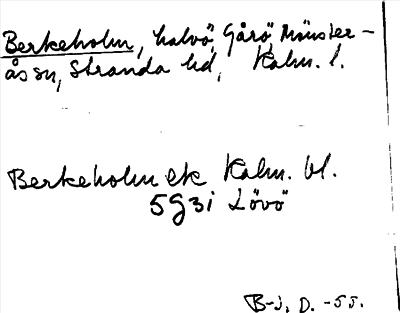 Berkeholm, halvö, Gårö, Mönster-
ås sn, Stranda hd, Kalm. l.
Berkeholm ek Kalm. bl.
5G3i Lövö
B-j, D. -55.